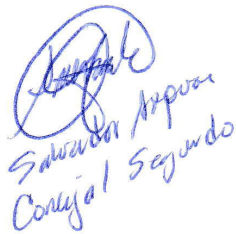 Salvador
Concejal Segundo